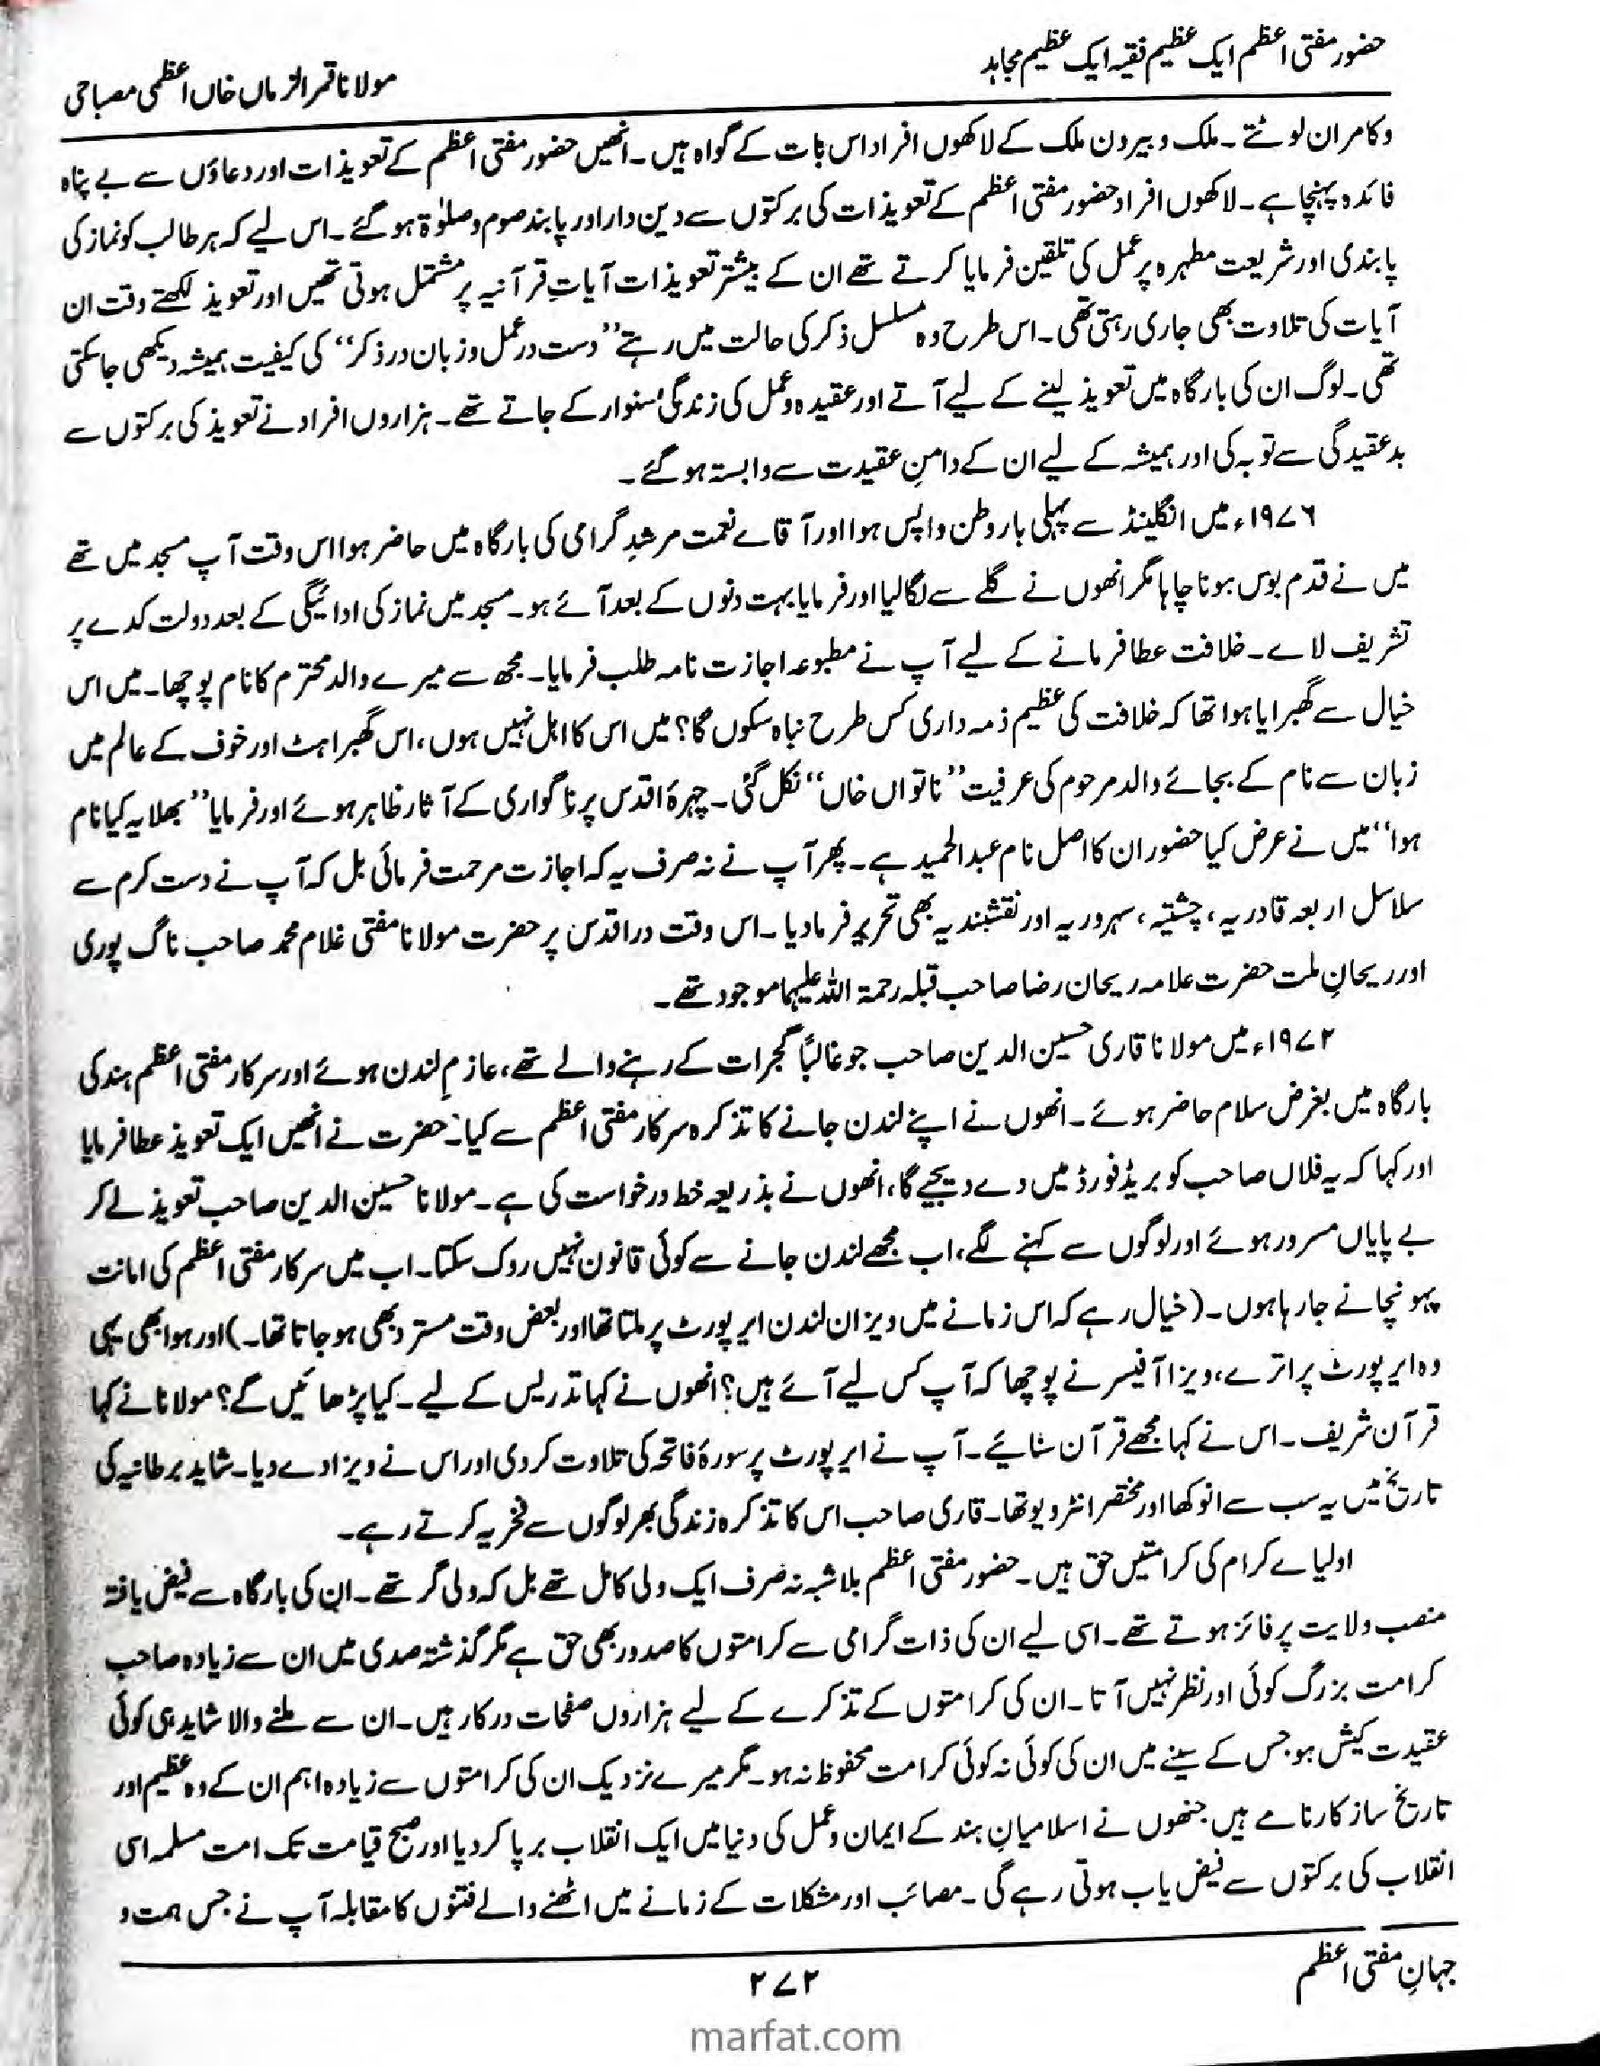 حضور مفتی اعظم ایک عظیم فقیہ ایک عظیم مجاہد
مولانا قمر الزماں خاں اعظمی مصباحی
وکامران لوٹتے۔ ملک و بیرون ملک کے لاکھوں افراد اس بات کے گواہ ہیں۔ انھیں حضور مفتی اعظم کے تعویذات اور دعاؤں سے بے پناہ
فائدہ پہنچا ہے۔ لاکھوں افراد حضور مفتی اعظم کے تعویذات کی برکتوں سے دین دار اور پابند صوم و صلوٰۃ ہو گئے۔ اس لیے کہ ہر طالب کو نماز کی
پابندی اور شریعت مطہرہ پر عمل کی تلقین فرمایا کرتے تھے ان کے بیشتر تعویذات آیاتِ قرآنیہ پر مشتمل ہوتی تھیں اور تعویذ لکھتے وقت ان
آیات کی تلاوت بھی جاری رہتی تھی۔ اس طرح وہ مسلسل ذکر کی حالت میں رہتے ”دست در عمل و زبان در ذکر“ کی کیفیت ہمیشہ دیکھی جاسکتی
تھی۔ لوگ ان کی بارگاہ میں تعویذ لینے کے لیے آتے اور عقیدہ و عمل کی زندگی سنوار کے جاتے تھے۔ ہزاروں افراد نے تعویذ کی برکتوں سے
بدعقیدگی سے توبہ کی اور ہمیشہ کے لیے ان کے دامنِ عقیدت سے وابستہ ہو گئے۔
۱۹۷۶ء میں انگلینڈ سے پہلی بار وطن واپس ہوا اور آقاے نعمت مرشدِ گرامی کی بارگاہ میں حاضر ہوا اس وقت آپ مسجد میں تھے
میں نے قدم بوس ہونا چاہا مگر انھوں نے گلے سے لگالیا اور فرمایا بہت دنوں کے بعد آئے ہو۔ مسجد میں نماز کی ادائیگی کے بعد دولت کدے پر
تشریف لاے۔ خلافت عطا فرمانے کے لیے آپ نے مطبوعہ اجازت نامہ طلب فرمایا۔ مجھ سے میرے والد محترم کا نام پوچھا۔ میں اس
خیال سے گھبرایا ہوا تھا کہ خلافت کی عظیم ذمہ داری کس طرح نباہ سکوں گا؟ میں اس کا اہل نہیں ہوں، اس گھبراہٹ اور خوف کے عالم میں
زبان سے نام کے بجائے والد مرحوم کی عرفیت ”ناتواں خاں“ نکل گئی۔ چہرۂ اقدس پر ناگواری کے آثار ظاہر ہوئے اور فرمایا ”بھلا یہ کیا نام
ہوا“ میں نے عرض کیا حضور ان کا اصل نام عبدالحمید ہے۔ پھر آپ نے نہ صرف یہ کہ اجازت مرحمت فرمائی بل کہ آپ نے دست کرم سے
سلاسل اربعہ قادریہ، چشتیہ، سہروریہ اور نقشبندیہ بھی تحریر فرمادیا۔ اس وقت در اقدس پر حضرت مولانا مفتی غلام محمد صاحب ناگ پوری
اور ریحانِ ملت حضرت علامہ ریحان رضا صاحب قبلہ رحمۃ اللہ علیہما موجود تھے۔
۱۹۷۲ء میں مولانا قاری حسین الدین صاحب جو غالباً گجرات کے رہنے والے تھے، عازمِ لندن ہوئے اور سرکار مفتی اعظم ہند کی
بارگاہ میں بغرض سلام حاضر ہوئے۔ انھوں نے اپنے لندن جانے کا تذکرہ سرکار مفتی اعظم سے کیا۔ حضرت نے انھیں ایک تعویذ عطا فرمایا
اور کہا کہ یہ فلاں صاحب کو بریڈ فورڈ میں دے دیجیے گا، انھوں نے بذریعہ خط درخواست کی ہے۔ مولانا حسین الدین صاحب تعویذ لے کر
بے پایاں مسرور ہوئے اور لوگوں سے کہنے لگے، اب مجھے لندن جانے سے کوئی قانون نہیں روک سکتا۔ اب میں سرکار مفتی اعظم کی امانت
پہونچانے جارہا ہوں۔ (خیال رہے کہ اس زمانے میں ویزا ان لندن ایرپورٹ پر ملتا تھا اور بعض وقت مسترد بھی ہو جاتا تھا۔) اور ہوا بھی یہی
وہ ایرپورٹ پر اترے، ویزا آفیسر نے پوچھا کہ آپ کس لیے آئے ہیں؟ انھوں نے کہا تدریس کے لیے۔ کیا پڑھائیں گے؟ مولانا نے کہا
قرآن شریف۔ اس نے کہا مجھے قرآن سنائیے۔ آپ نے ایرپورٹ پر سورۂ فاتحہ کی تلاوت کردی اور اس نے ویزا دے دیا۔ شاید برطانیہ کی
تاریخ میں یہ سب سے انوکھا اور مختصر انٹرویو تھا۔ قاری صاحب اس کا تذکرہ زندگی بھر لوگوں سے فخریہ کرتے رہے۔
اولیاے کرام کی کرامتیں حق ہیں۔ حضور مفتی اعظم بلاشبہ نہ صرف ایک ولی کامل تھے بل کہ ولی گر تھے۔ ان کی بارگاہ سے فیض یافتہ
منصب ولایت پر فائز ہوتے تھے۔ اسی لیے ان کی ذات گرامی سے کرامتوں کا صدور بھی حق ہے مگر گذشتہ صدی میں ان سے زیادہ صاحب
کرامت بزرگ کوئی اور نظر نہیں آتا۔ ان کی کرامتوں کے تذکرے کے لیے ہزاروں صفحات درکار ہیں۔ ان سے ملنے والا شاید ہی کوئی
عقیدت کیش ہو جس کے سینے میں ان کی کوئی نہ کوئی کرامت محفوظ نہ ہو۔ مگر میرے نزدیک ان کی کرامتوں سے زیادہ اہم ان کے وہ عظیم اور
تاریخ ساز کارنامے ہیں جنھوں نے اسلامیانِ ہند کے ایمان و عمل کی دنیا میں ایک انقلاب برپا کردیا اور صبح قیامت تک امت مسلمہ اسی
انقلاب کی برکتوں سے فیض یاب ہوتی رہے گی۔ مصائب اور مشکلات کے زمانے میں اٹھنے والے فتنوں کا مقابلہ آپ نے جس ہمت و
جہانِ مفتی اعظم
۲۷۲
marfat.com